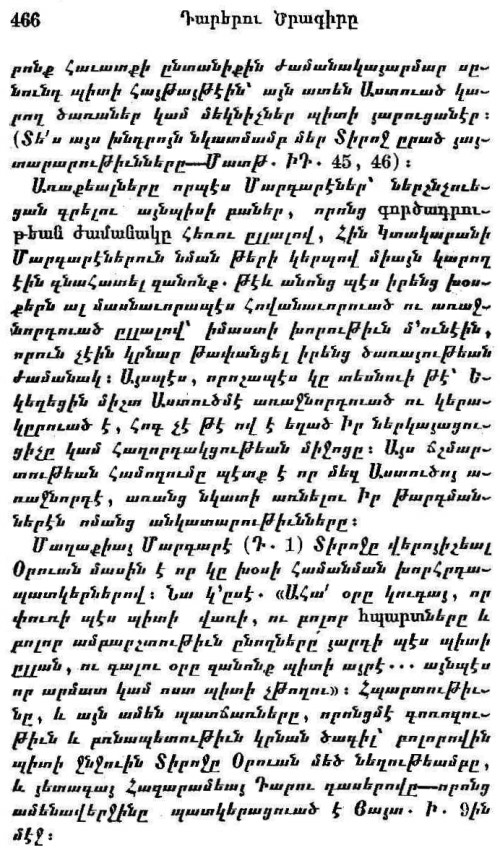 466 Դարերու Ծրագիրը
րոնք Հաւատքի ընտանիքին ժամանակայարմար սը-
նունդ պիտի Հայթայթէին՝ այն ատեն Աստուած կա-
րող ծառաներ կամ մեկնիչներ պիտի յարուցանէր։
(Տե՛ս այս խնդրոյն նկատմամբ մեր Տիրոջ ըրած յայ-
տարարութիւնները—Մատթ. ԻԴ. 45, 46)։
Առաքեալները որպէս Մարդարէներ՝ ներշնչուե-
ցան գրելու այնպիսի բաներ, որոնց գործադրու-
թեան ժամանակը Հեռու ըլլալով, Հին Կտակարանի
Մարգարէներուն նման թերի կերպով միայն կարող
էին գնահատել զանոնք. թէև անոնց պէս իրենց խօս-
քերն ալ մասնաւորապէս Հովանաւորուած ու առաջ-
նորդուած ըլլալով՝ իմաստի խորութիւն մ՚ունէին,
որուն չէին կրնար թափանցել իրենց ծառայութեան
ժամանակ։ Այսպէս, որոշապէս կը տեսնուի թէ՝ Ե-
կեղեցին միշտ Աստուծմէ առաջնորդուած ու կերա-
կըրուած է, Հոգ չէ թէ ով է եղած Իր ներկայացու-
ցիչը կամ Հաղորդակցութեան միջոցը։ Այս ճշմար-
տութեան Համոզումը պէտք է որ մեզ Աստուծոյ ա-
ռաջնորդէ, առանց նկատի առնելու Իր թարգման-
ներէն ոմանց անկատարութիւնները։
Մաղաքիայ Մարգարէ (Դ. 1) Տիրոջը վերոյիշեալ
Օրուան մասին է որ կը խօսի Համանման խորհրդա-
պատկերներով։ Նա կ՚ըսէ. «Ահա՛ օրը կուգայ, որ
փուռի պէս պիտի վառի, ու բոլոր հպարտները և
բոլոր ամբարշտութիւն ընողները յարդի պէս պիտի
ըլլան, ու գալու օրը զանոնք պիտի այրէ... այնպէս
որ արմատ կամ ոստ պիտի չթողու»։ Հպարտութիւ-
նը, և այն ամեն պատճառները, որոնցմէ գոռոզու-
թիւն և բռնապետութիւն կրնան ծագիլ՝ բոլորովին
պիտի ջնջուին Տիրոջը Օրուան մեծ նեղութեամբը,
և յետագայ Հազարամեայ Դարու դասերովը—որոնց
ամենավերջինը պատկերացուած է Յայտ. Ի. 9ին
մէջ։